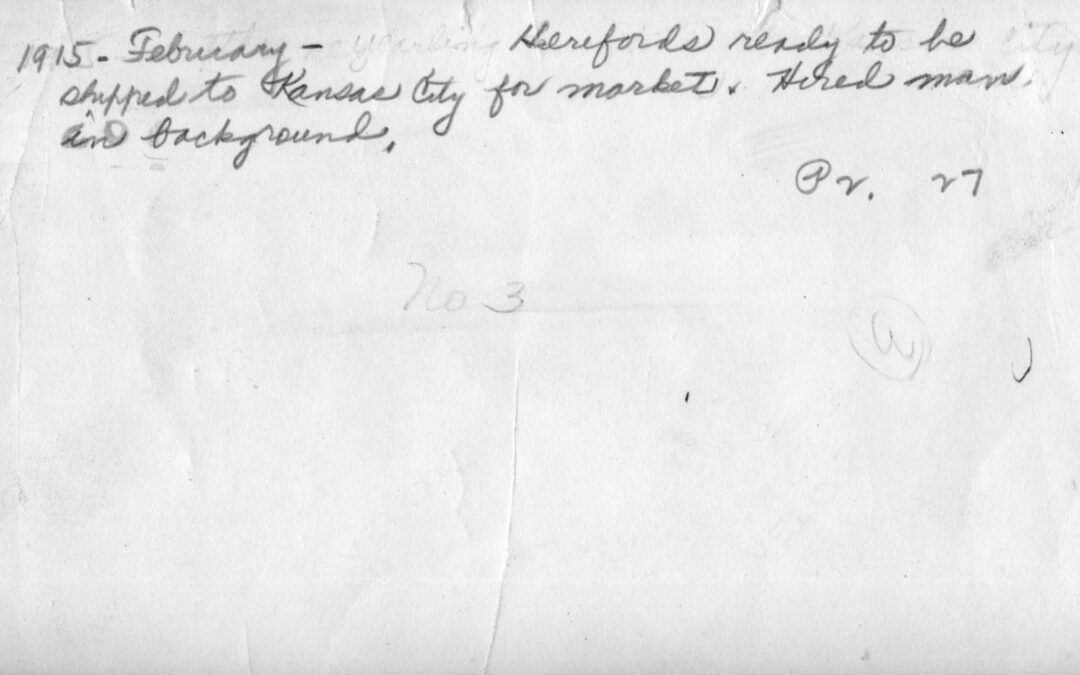 1915 - February - yearling Herefords ready to be
shipped to Kansas City for market. Hired man
in background.
Pr. 27
No 3
W